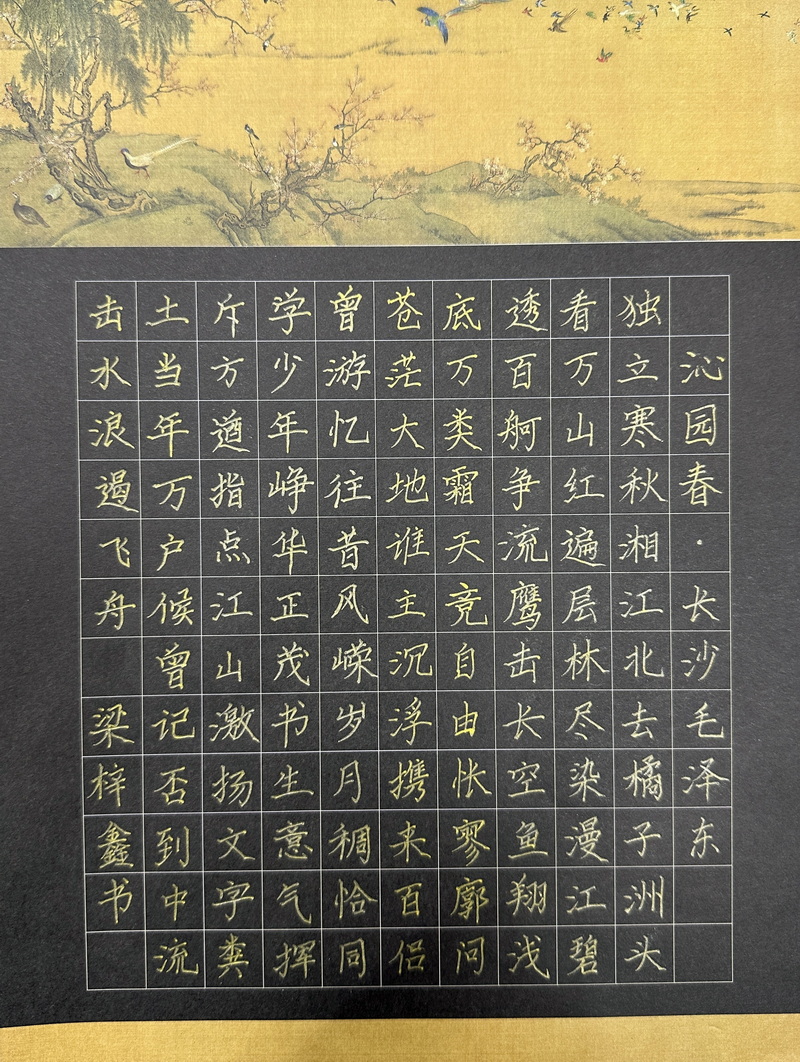 沁园春·长沙毛泽东
独立寒秋湘江北去橘子洲头
看万山红遍层林尽染漫江碧
透百舸争流鹰击长空鱼翔浅
底万类霜天竞自由怅寥廓问
苍茫大地谁主沉浮携来百侣
曾游忆往昔风嵘岁月稠恰同
学少年峥华正茂书生意气挥
斥方遒指点江山激扬文字粪
土当年万户候曾记否到中流
击水浪遏飞舟 梁梓鑫书